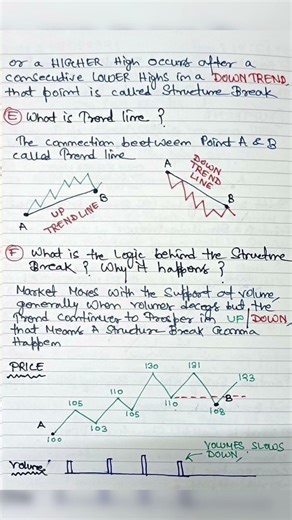 or a HIGHER High occurs after a
consecutive LOWER Highs in a DOWN TREND,
that point is called Structure Break
E What is Trend line ?
The connection beetween Point A & B
called Trend line
A
B
UP
TREND LINE
A
B
DOWN
TREND
LINE
F What is the Logic behind the Structure
Break ? Why it happens ?
Market Moves with the Support of volume,
generally when volumes decays but the
Trend continues to Prosper in UP/DOWN,
that Means A Structure Break Gonna
Happen
PRICE
A
100
105
103
110
105
130
110
121
B
108
123
Volume
VOLUMES SLOWS
DOWN